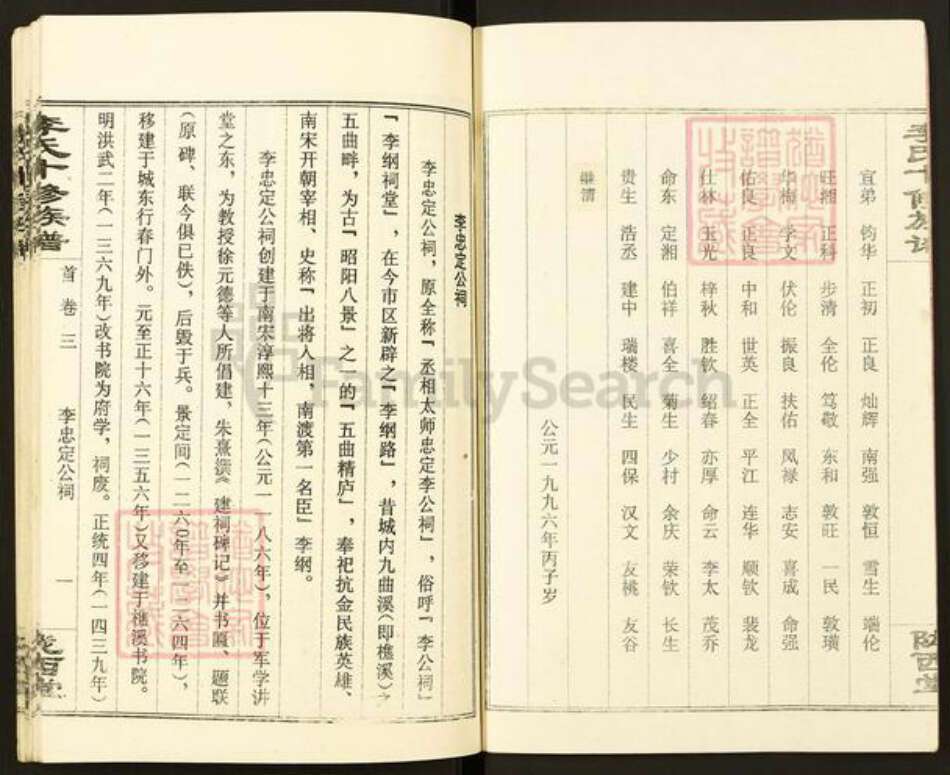 李氏十修族谱
陇西堂
宜弟 钧华 正初 正良 灿辉 南强 敦恒 雪生 端伦
旺湘 正科 步清 全伦 笃敬 东和 敦旺 一民 敦璜
华梅 学文 伏伦 振良 扶佑 凤禄 志安 喜成 命强
佑良 正良 中和 世英 正全 平江 连华 顺钦 裴龙
仕林 玉光 梓秋 胜钦 绍春 亦厚 命云 李太 茂乔
命东 定湘 伯祥 喜全 菊生 少村 余庆 荣钦 长生
贵生 浩丞 建中 瑞楼 民生 四保 汉文 友桃 友谷
继清
公元一九九六年丙子岁
李忠定公祠
李忠定公祠，原全称「丞相太师忠定李公祠」，俗呼「李公祠」
「李纲祠堂」，在今市区新辟之「李纲路」，昔城内九曲溪（即樵溪）之
五曲畔，为古「昭阳八景」之一的「五曲精庐」，奉祀抗金民族英雄、
南宋开朝宰相、史称「出将人相，南渡第一名臣」李纲。
李忠定公祠创建于南宋淳熙十三年（公元一一八六年），位于军学讲
堂之东，为教授徐元德等人所倡建，朱熹撰《建祠碑记》并书匾、题联
（原碑、联今俱已佚），后毁于兵。景定间（一二六0年至一二六四年），
移建于城东行春门外。元至正十六年（一三五六年）又移建于樵溪书院。
明洪武二年（一三六九年）改书院为府学，祠废。正统四年（一四三九年）
李氏十修族谱
首卷三
李忠定公祠
一
陇西堂
FamilySearch